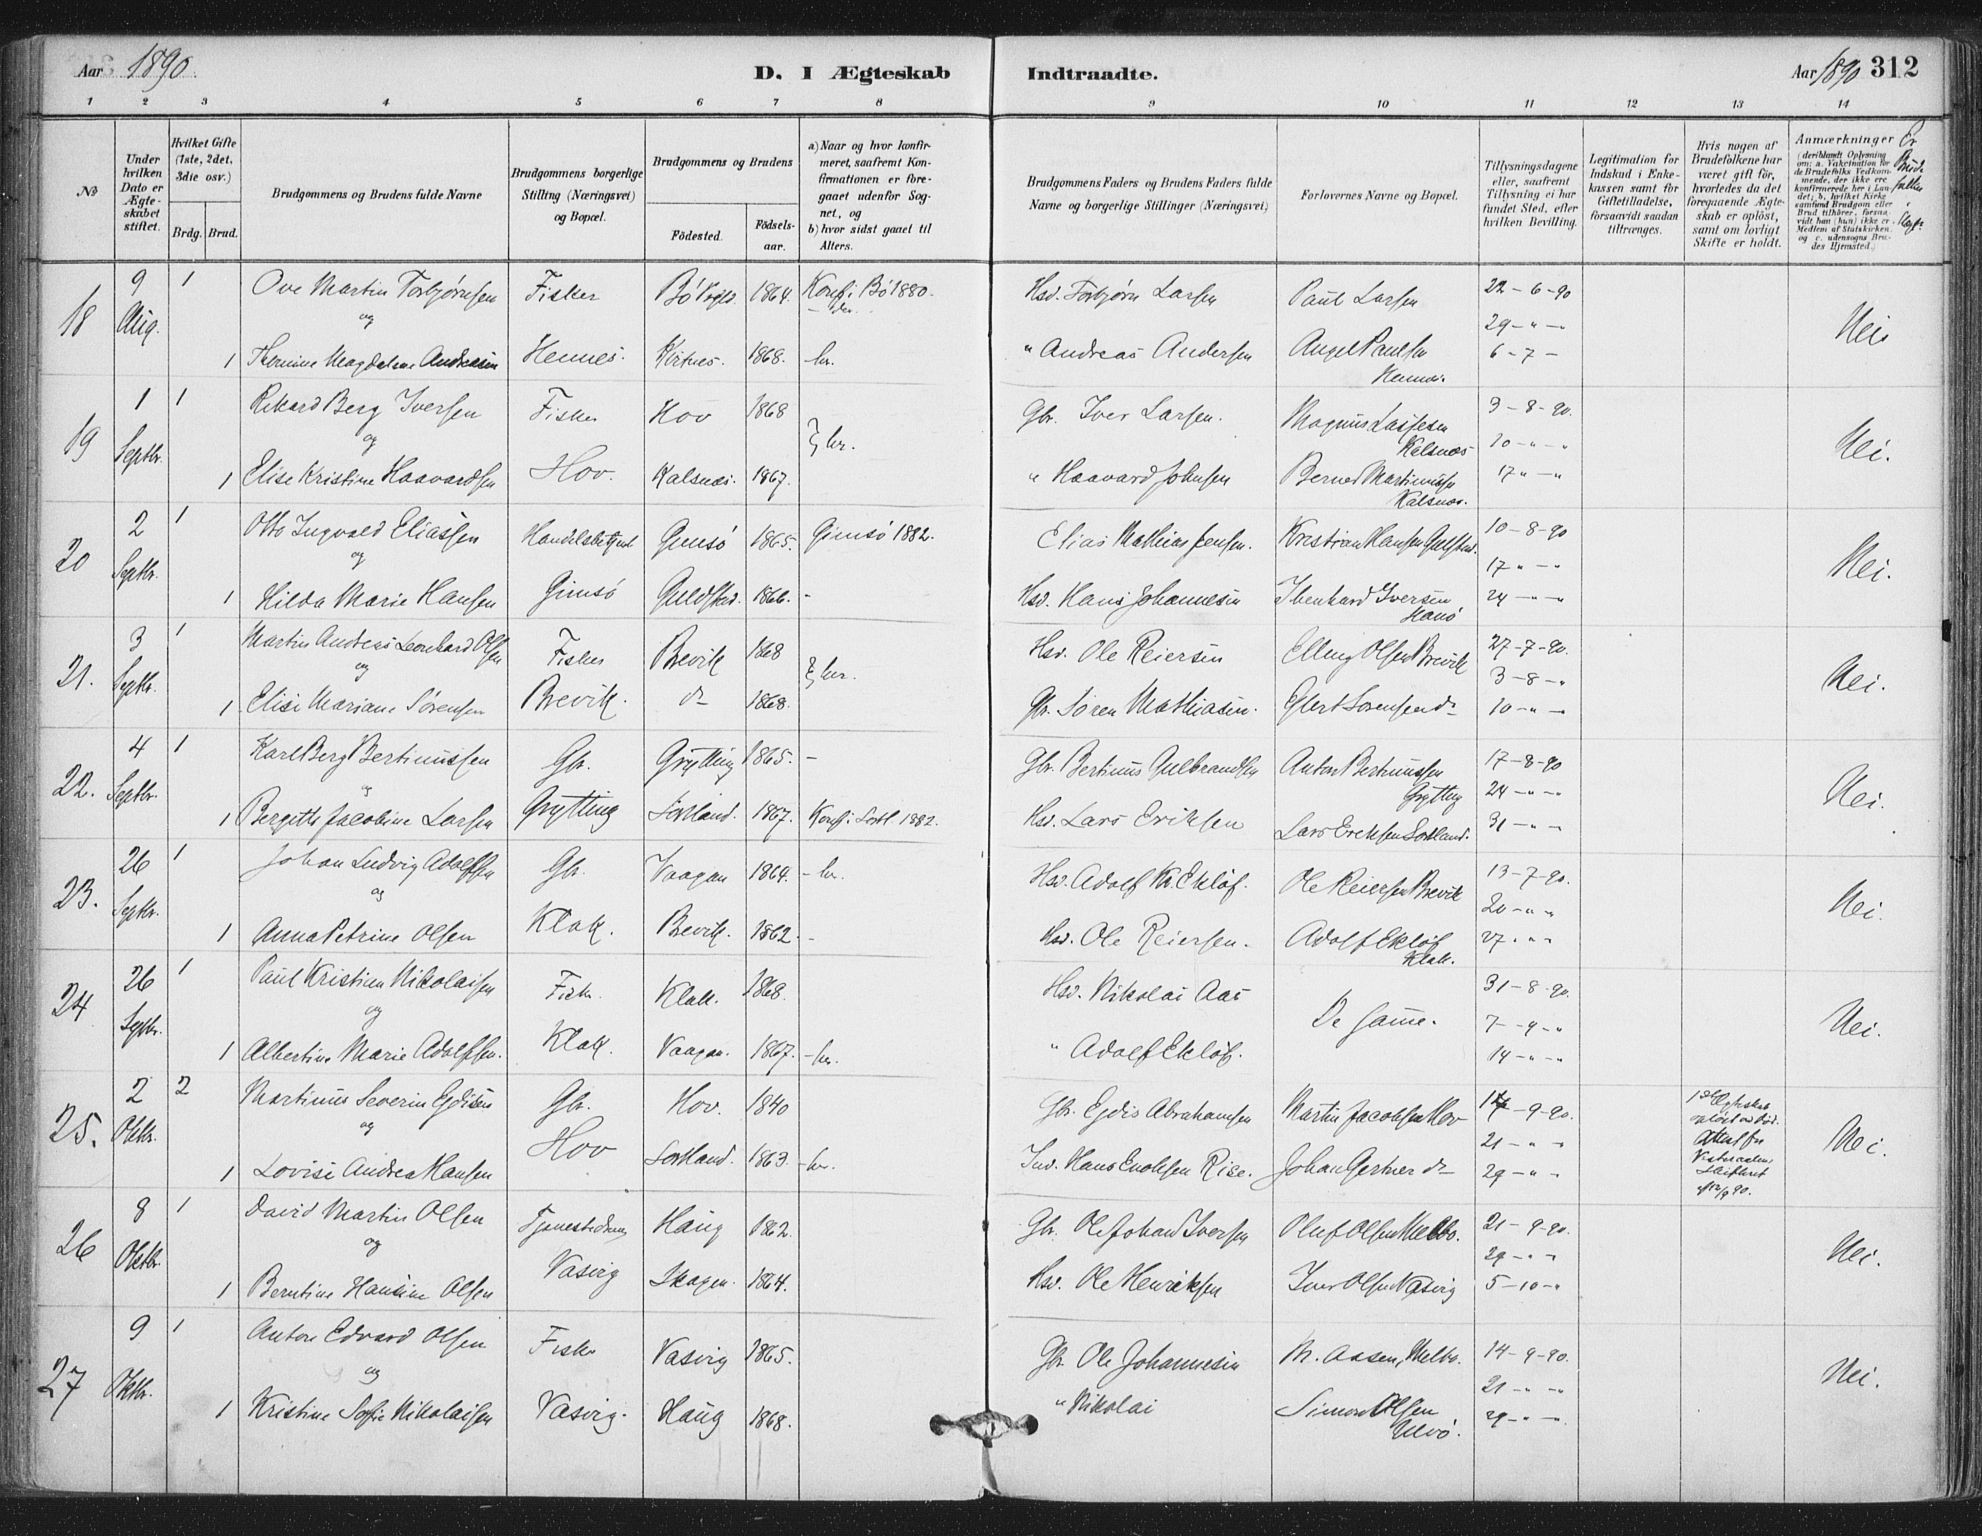 Aar 1890. D. I Ægteskab Indtraadte. Aar 1890 312
1 2 3 4 5 6 7 8 9 10 11 12 13 14
No
Under hvilken Dato er Ægteskabet stiftet.
Hvilket Gifte (1ste, 2det, 3die osv.)
Brdg. Brud.
Brudgommens og Brudens fulde Navne
Brudgommens borgerlige Stilling (Næringsvei) og Bopæl.
Brudgommens og Brudens
Födested. Födselsaar.
a) Naar og hvor konfirmeret, saafremt Konfirmationen er foregaaet udenfor Sognet, og
b) hvor sidst gaaet til Alters.
Brudgommens Faders og Brudens Faders fulde Navne og borgerlige Stillinger (Næringsvei)
Forlovernes Navne og Bopæl.
Tillysningsdagene eller, saafremt Tillysning ei har fundet Sted, efter hvilken Bevilling.
Legitimation for Indskud i Enkekassen samt for Giftetilladelse, forsaavidt saadan tiltrænges.
Hvis nogen af Brudefolkene har været gift før, hvorledes da det foregaaende Ægteskab er oplöst, samt om lovligt Skifte er holdt.
Anmærkninger (deriblandt Oplysning om: a. Vakcination for de Brudefolks Vedkommende, der ikke ere konfirmerede her i Landet; b. hvilket Kirkesamfund Brudgom eller Brud tilhörer, forsaavidt han (hun) ikke er Medlem af Statskirken, og c. udensogns Brudes Hjemsted.)
18 9 Aug. 1 Ove Martin Torbjørnsen Fisker Bö 1864. Konf. i Bö 1880. Hsd. Torbjørn Larsen Paul Larsen 22-6-90
og 29-"-
1 Magdalene Andreasen Hennes. Kirknes. 1868. hr. " Andreas Andersen Angel Paulsen Hennes. 6-7- Nei
19 1 Septbr. 1 Rikard Berg Iversen Fisker Hov 1868 hr. Gbr. Iver Larsen. Magnus Lassesen Kalsnæs 3-8-90.
og 10-"-"
1 Elise Kristine Haavardsen Hov. Kalsnæs. 1867. " Haavard Johnsen Berner Martinussen Kalsnæs. 17"-" Nei.
20 2 Septbr. 1 Otto Ingvald Eliassen Handelsbetjent Gimsö 1865. Gimsö 1882. Elias Mathias Jensen. Kristian Hansen Guldsted. 10-8-90
og 17"-"
1 Hilda Marie Hansen Gimsö Guldsted. 1866. - Hsd. Hans Johannesen Ibenhard Iversen Hanö 24-"-" Nei.
21. 3 Septbr. 1 Martin Andreas Leonhard Olsen Fisker Brevik 1868 hr. Hsd. Ole Reiersen Elling Olsen Brevik 27-7-90.
og 3-8-"
1 Elise Mariane Sørensen Brevik. do 1868. Gbr. Søren Mathiasen. Elert Sørensen do 10-"- Nei.
22. 4 Septbr. 1 Karl Berg Bertinussen Gbr. Grytting 1865. - Gbr. Bertinus Gulbrandsen Anton Bertinussen Grytting 17-8-90
og 24-"-"
1 Bergitte Jacobine Larsen Grytting Sortland. 1867. Konf. i Sortl. 1882. Hsd. Lars Eriksen Lars Eriksen Sortland. 31-"-" Nei.
23. 26 Septbr. 1 Johan Ludvig Adolfsen Gbr. Vaagan 1864. - hr. Hsd. Adolf Kr. Ekløf. Ole Reiersen Brevik 13-7-90.
og 20-"-"
1 Anna Petrine Olsen Klak. Brevik. 1862. - Hsd. Ole Reiersen. Adolf Ekløf Klak. 27-"-" Nei.
24 26 Septbr. 1 Paul Kristian Nikolaisen Fisk. Klak. 1868. Hsd. Nikolai Aas De Samme. 31-8-90.
og 7-9-"
1 Albertine Marie Adolfsen. Klak. Vaagan. 1867. - hr. " Adolf Ekløf. 14-"-" Nei.
25. 2 Oktbr. 2 Martinus Severin Egdisen Gbr. Hov. 1840 Gbr. Egdis Abrahamsen Martin Jacobsen Hov 14-9-90. 1ste Ægteskab opløst ved Død. Attest fra Vesteraalens Skifteret af 12/9 90.
og 21-"-"
1 Lovise Andrea Hansen Hov Sortland. 1863. - hr. Inv. Hans Enoksen Rise. Johan Gertner do 29-"-" Nei.
26 8 Oktbr. 1 David Martin Olsen Tjenestedreng Haug 1862. Gbr. Ole Johan Iversen Oluf Olsen Melbo. 21-9-90.
og 29-"-"
1 Berntine Hansine Olsen Vasvig Skagen. 1864. Hsd. Ole Henriksen Iver Olsen Vasvig 5-10-" Nei.
27 9 Oktbr. 1 Anton Edvard Olsen Fisker Vasvig 1865. Gbr. Ole Johannesen M. Aasen, Melbo. 14-9-90.
og 21-"-"
1 Kristine Sofie Nikolaisen Vasvig. Haug 1868. " Nikolai Simon Olsen Ulvö. 29-"-" Nei.